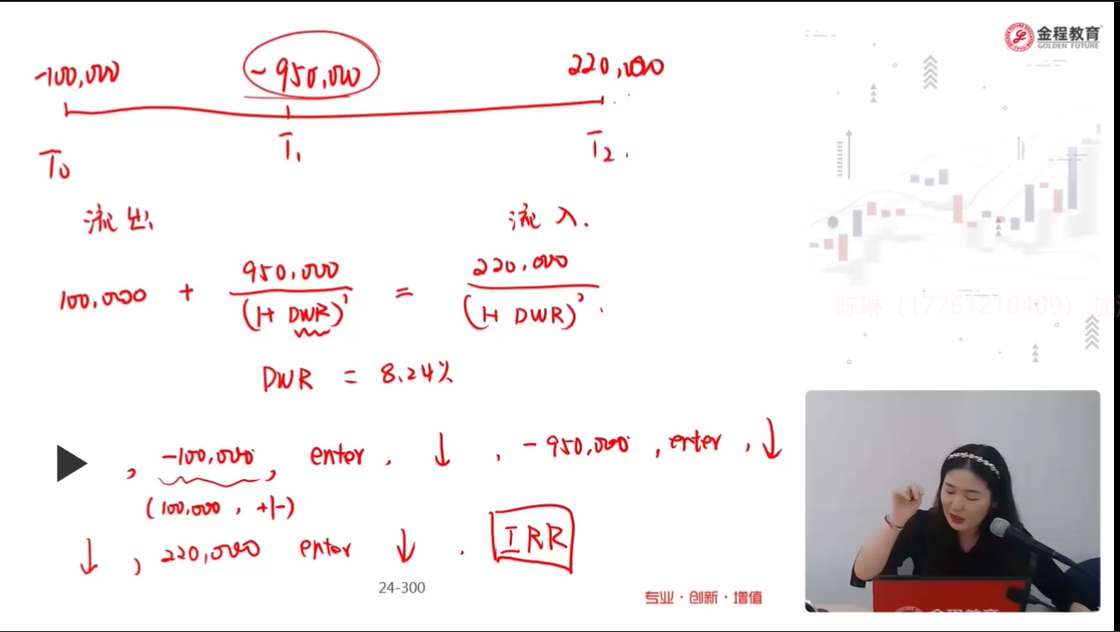 金程教育
GOLDEN FUTURE
-100,000 -950,000 220,000
T0 T1 T2.
流出 流入.
100,000 + 950,000/(1+DWR)^1 = 220,000/(1+DWR)^2.
DWR = 8.24%
, -100,000, enter, ↓, -950,000, enter, ↓
(100,000, +/-)
↓, 220,000 enter ↓. IRR
24-300
专业·创新·增值
陈琳(17761210409)
金程教育